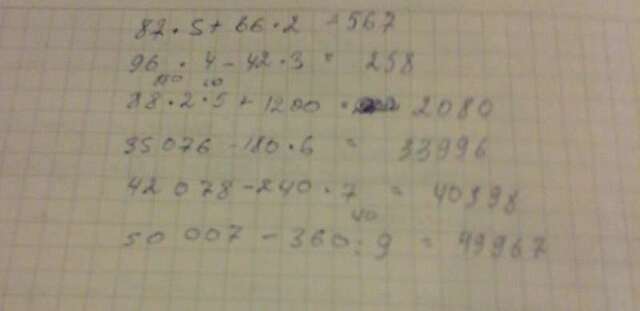 82 · 5 + 66 · 2 = 567
96 · 4 - 42 · 3 = 258
88 · 2 · 5 + 1200 = 2080
35 076 - 180 · 6 = 33996
42 078 - 240 · 7 = 40398
40
50 007 - 360 : 9 = 49967